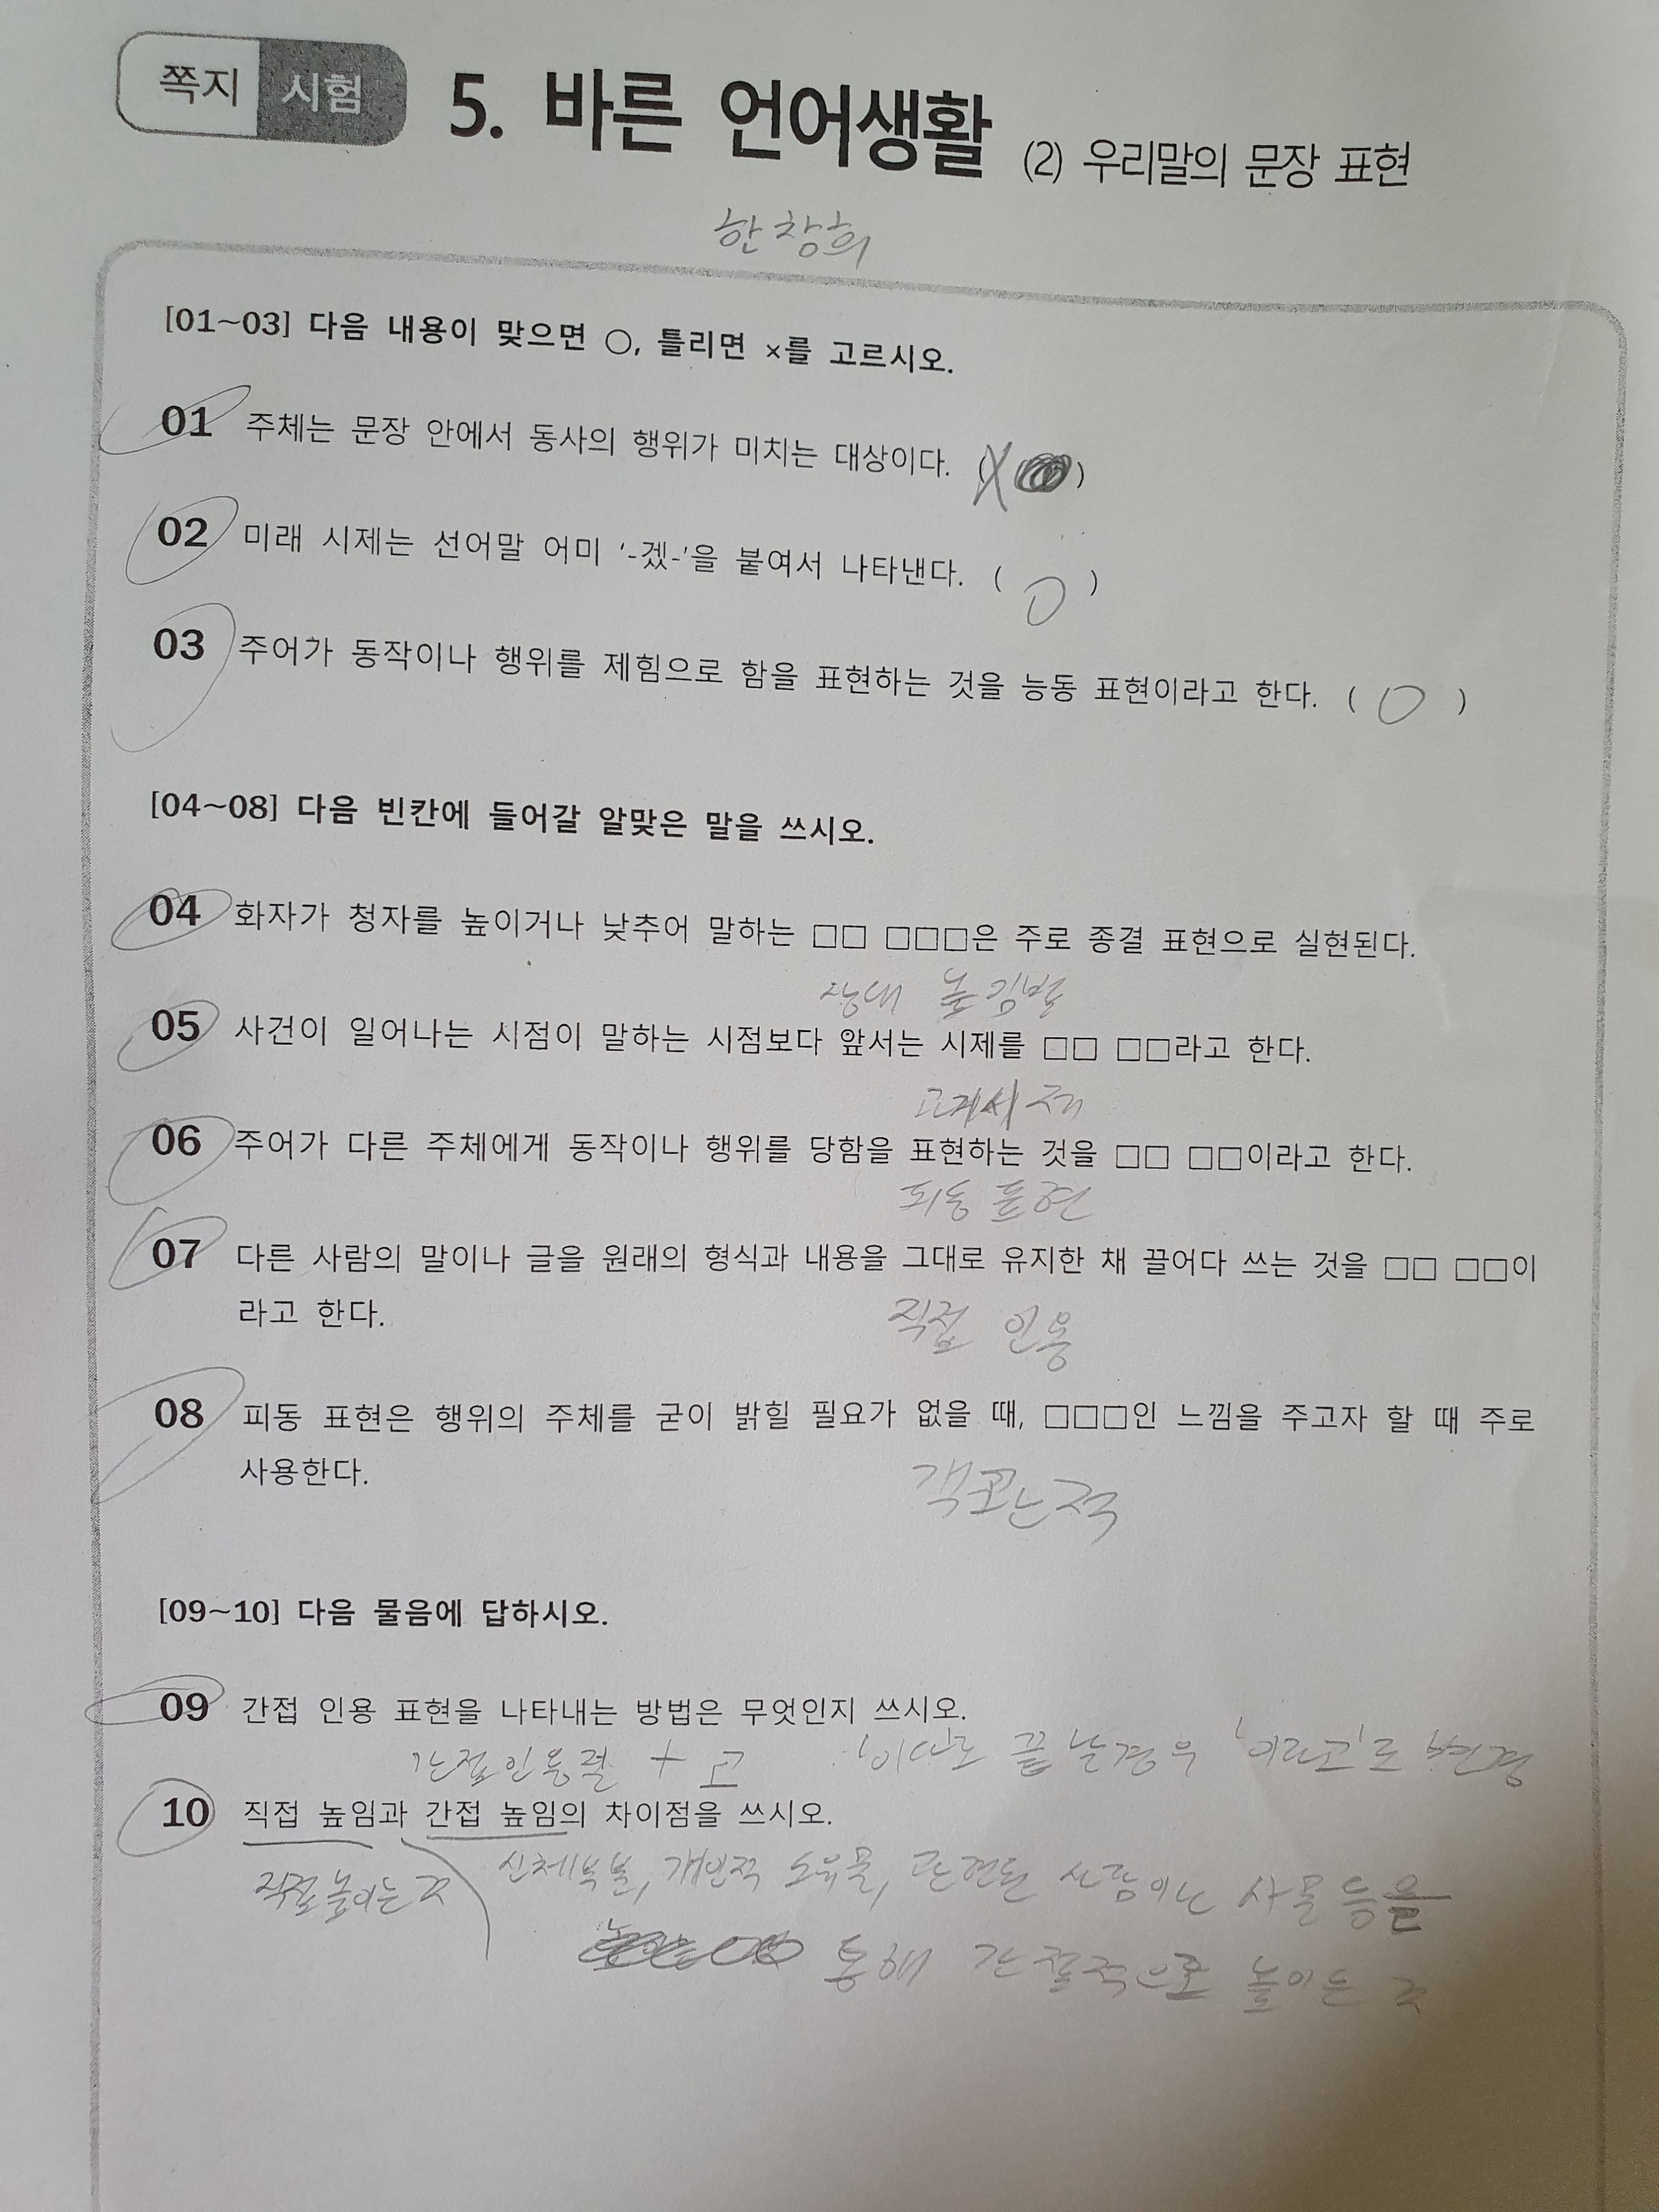 쪽지 시험 5. 바른 언어생활 (2) 우리말의 문장 표현
한창희
[01~03] 다음 내용이 맞으면 ○, 틀리면 ×를 고르시오.
01 주체는 문장 안에서 동사의 행위가 미치는 대상이다. (X )
02 미래 시제는 선어말 어미 '-겠-'을 붙여서 나타낸다. ( O )
03 주어가 동작이나 행위를 제힘으로 함을 표현하는 것을 능동 표현이라고 한다. ( O )
[04~08] 다음 빈칸에 들어갈 알맞은 말을 쓰시오.
04 화자가 청자를 높이거나 낮추어 말하는 □□ □□□은 주로 종결 표현으로 실현된다.
상대 높임법
05 사건이 일어나는 시점이 말하는 시점보다 앞서는 시제를 □□ □□라고 한다.
과거시제
06 주어가 다른 주체에게 동작이나 행위를 당함을 표현하는 것을 □□ □□이라고 한다.
피동 표현
07 다른 사람의 말이나 글을 원래의 형식과 내용을 그대로 유지한 채 끌어다 쓰는 것을 □□ □□이
라고 한다.
직접 인용
08 피동 표현은 행위의 주체를 굳이 밝힐 필요가 없을 때, □□□인 느낌을 주고자 할 때 주로
사용한다.
객관적
[09~10] 다음 물음에 답하시오.
09 간접 인용 표현을 나타내는 방법은 무엇인지 쓰시오.
간접인용절 + 고 '이다'로 끝날경우 '이라고'로 변경
10 직접 높임과 간접 높임의 차이점을 쓰시오.
직접높이는것 신체부분, 개인적 소유물, 관련된 사람이나 사물 등을
통해 간접적으로 높이는 것